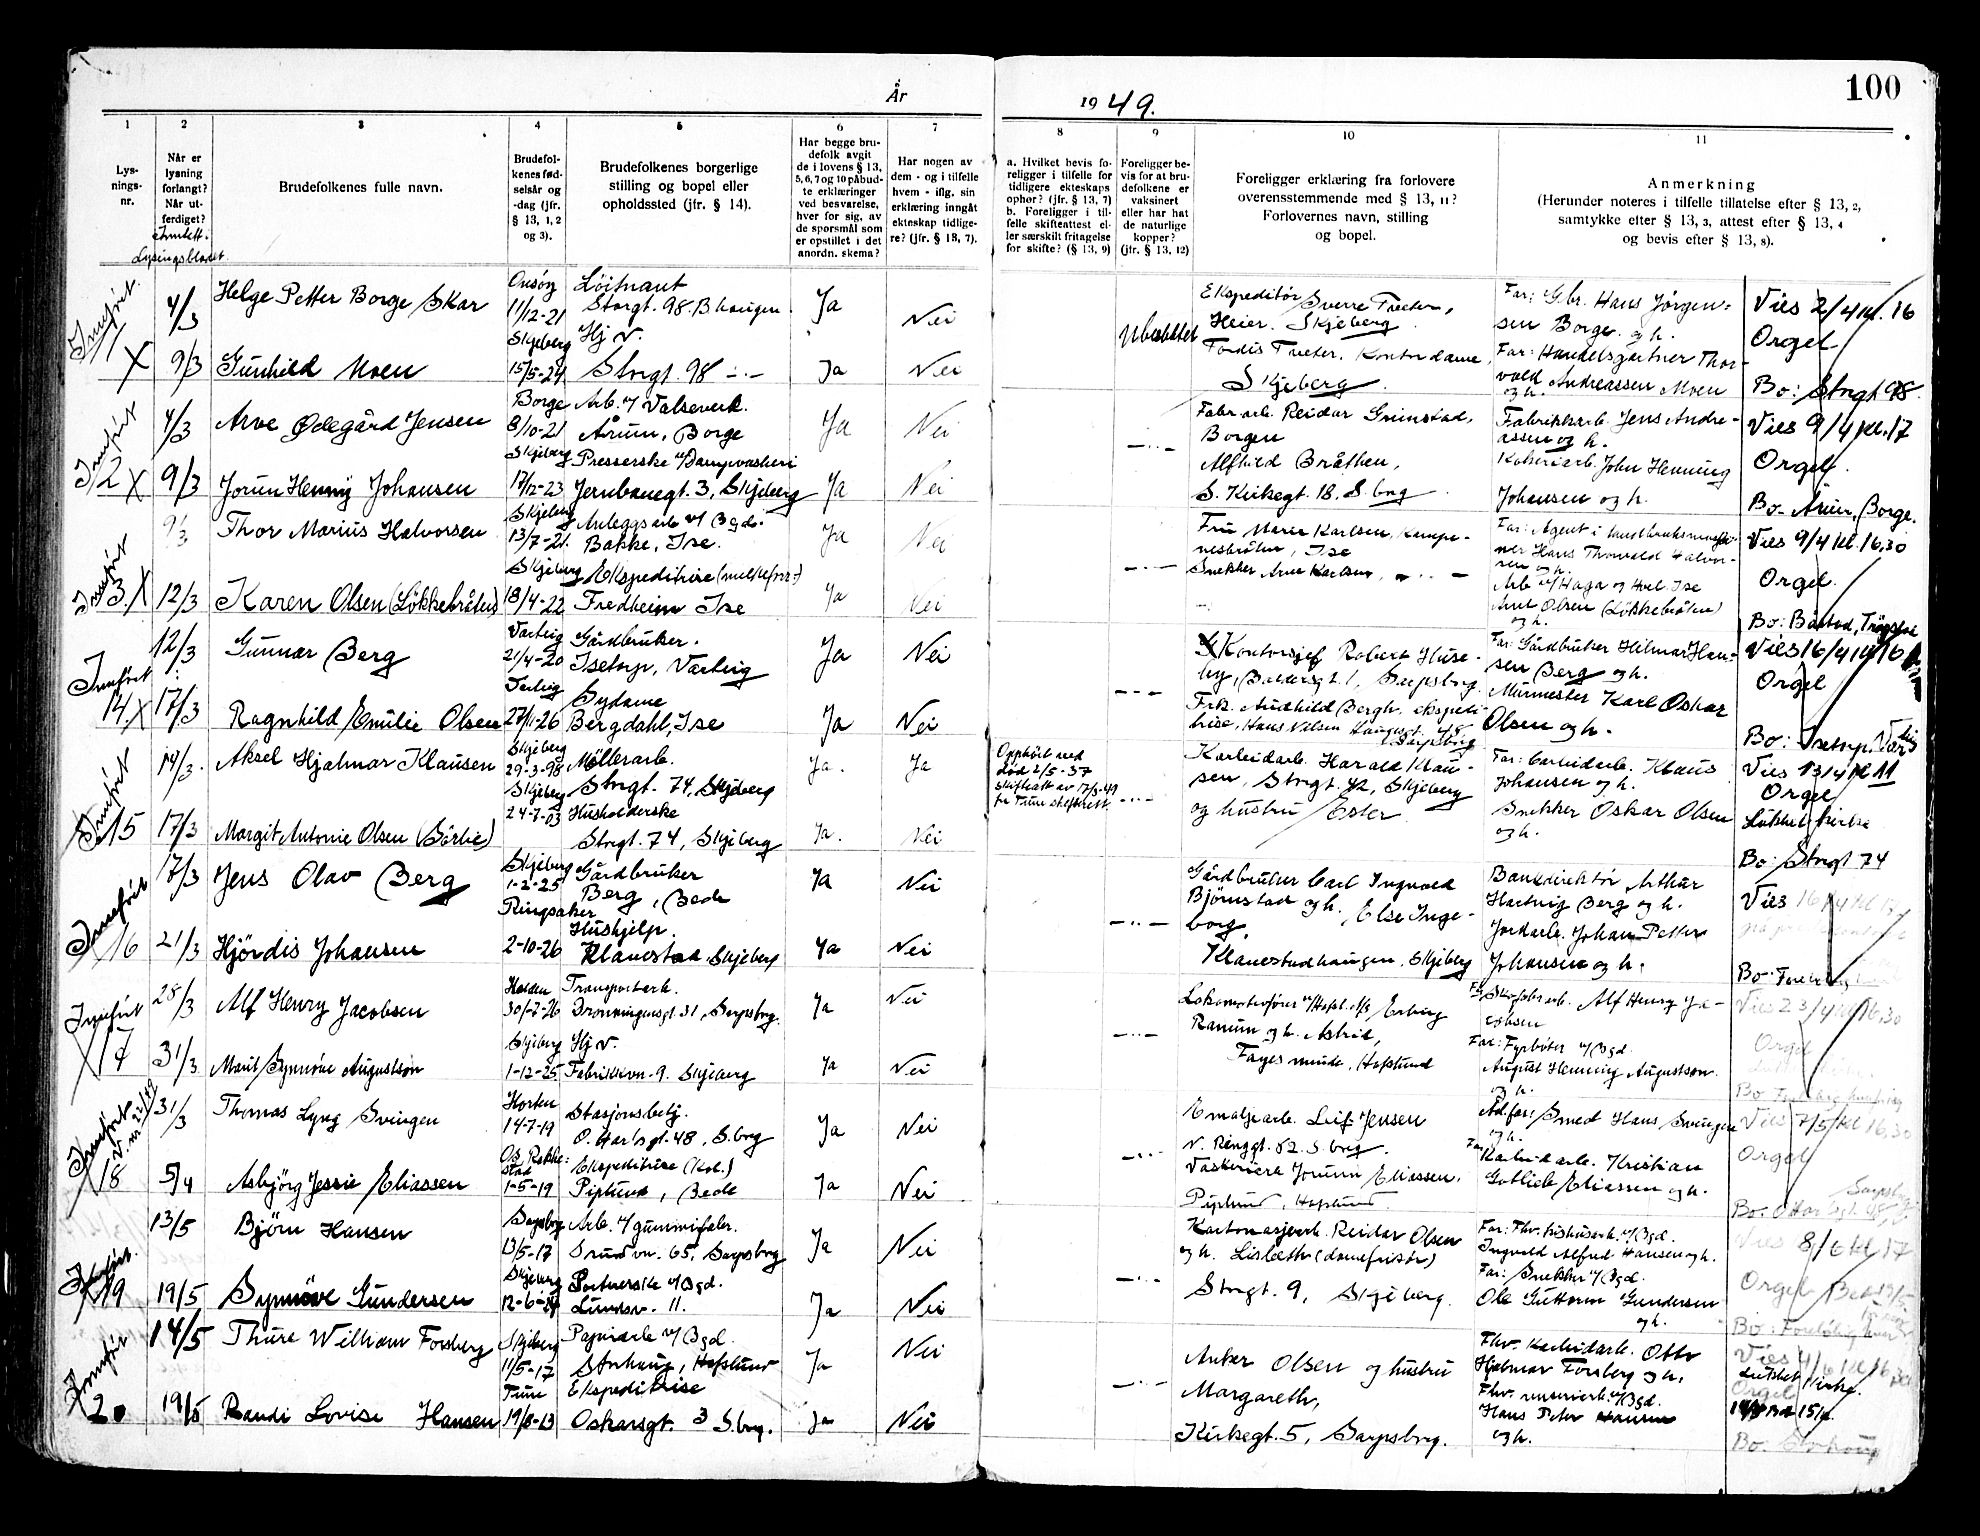 År
19 49.
100
1
2
3
4
5
6
7
8
9
10
11
Lys-
nings-
nr.
Når er
lysning
forlangt?
Når ut-
ferdiget?
Lysingsbladet
Brudefolkenes fulle navn.
Brudefol-
kenes fød-
selsår og
-dag (jfr.
§ 13, 1, 2
og 3).
Brudefolkenes borgerlige
stilling og bopel eller
opholdssted (jfr. § 14).
Har begge bru-
defolk avgit
de i lovens § 13,
5, 6, 7 og 10 påbud-
te erklæringer
ved besvarelse,
hver for sig, av
de spørsmål som
er opstillet i det
anordn. skema?
Har nogen av
dem - og i tilfelle
hvem - iflg. sin
erklæring inngåt
ekteskap tidlige-
re? (jfr. § 13, 7).
a. Hvilket bevis fo-
religger i tilfelle for
tidligere ekteskaps
ophør? (jfr. § 13, 7)
b. Foreligger i til-
felle skifteattest el-
ler særskilt fritagelse
for skifte? (§ 13, 9)
Foreligger be-
vis for at bru-
defolkene er
vaksinert
eller har hat
de naturlige
kopper?
(jfr. § 13, 12)
Foreligger erklæring fra forlovere
overensstemmende med § 13, 11?
Forlovernes navn, stilling
og bopel.
Anmerkning
(Herunder noteres i tilfelle tillatelse efter § 13, 2,
samtykke efter § 13, 3, attest efter § 13, 4
og bevis efter § 13, 8).
Innført
11 X
4/3
Helge Petter Borge Skar
Onsøy
11/12-21
Löitnant
Storgt. 98. B haugen
Ja
Nei
Ekspeditör Sverre Treter,
Heier. Skjeberg
Far: Gbr. Hans Jörgen-
sen Borge. og h.
Vies 2/4 kl. 16
Orgel
9/3
Gunhild Moen
Skjeberg
15/5-24
Hj v.
Storgt. 98 -..-
Ja
Nei
Tordis Treter. Kontordame,
Skjeberg.
Far: Handelsgartner Thor-
vald Andreassen Moen
og h.
Bo: Storgt. 98.
Innført
12 X
4/3
Arve Ødegård Jensen
Borge
8/10-21
Arb. v/ Valseverk.
Årum, Borge
Ja
Nei
Fabr arb. Reidar Grimstad,
Borgen
Fabrikkarb. Jens Andre-
assen og h.
Vies 9/4 kl. 17
Orgel.
9/3
Jorun Henny Johansen
Skjeberg
17/12-23
Presserske v/Dampvaskeri
Jernbanegt. 3, Skjeberg
Ja
Nei
Alfhild Bråthen,
S. Kirkegt. 18, S.borg
John Henning
Johansen og h.
Bo- Årum, Borge.
Innført
13 X
9/3
Thor Marius Halvorsen
Skjeberg
13/7-21
Anleggsarb v/ Bgd.
Bakke, Ise.
Ja
Nei
Fru Marie Karlsen, Kampe-
nesbråten, Ise
Hans Thorvald Halvor-
sen og h.
Vies 9/4 kl. 16,30
Orgel.
12/3
Karen Olsen (Lökkebråten)
Skjeberg
18/4-22
Ekspeditrise (melkeforr.)
Fredheim Ise
Ja
Nei
Snekker Arne Karlsen, - .. -
Arb v/ Haga og Hvil Ise
Arnt Olsen (Lökkebråten)
og h.
Bo: Båstad, Trøgstad
Innført
14. X
12/3
Gunnar Berg
Varteig
21/4-20
Gårdbruker.
Isetorp, Varteig
Ja
Nei
Kontorsjef Robert Huse-
by, Baldersgt. 1, Sarpsborg.
Far: Gårdbruker Hilmar Han-
sen Berg og h.
Vies 16/4 kl 16
Orgel
17/3
Ragnhild Emilie Olsen
Varteig
27/11-26
Sydame
Bergdahl, Ise
Ja
Nei
Frk. Audhild Bergh, ekspedi-
trise, Hans Nilsen
Sarpsborg
Murmester Karl Oskar
Olsen og h.
Bo: Isetorp, Varteig
Innført
15
14/3.
Aksel Hjalmar Klausen
Skjeberg
29-3-98
Möllerarb.
Storgt. 74, Skjeberg
Ja.
Ja
Opphört ved
död 2/5-37
skifteatt av 17/3-49
fr Tune skifterett.
Karbidarb. Harald Klau-
sen, Storgt. 42, Skjeberg
og hustru Ester.
Far: Carbidarb. Klaus
Johansen og h.
Vies 13/4 kl 11
Orgel
17/3
Margit Antonie Olsen (Sörlie)
Skjeberg
24-7-03
Husholderske
Storgt. 74, Skjeberg
Ja.
Nei
Snekker Oskar Olsen
og h.
kirke
Bo: Storgt 74
Innført
16
17/3
Jens Olav Berg
Skjeberg
1-2-25
Gårdbruker
Berg, Bede
Ja
Nei
Gårdbruker Carl Ingvald
Björnstad og h. Else Inge-
borg,
Bankdirektör Arthur
Hartvig Berg og h.
Vies 16/4 kl
21/3
Hjördis Johansen
Ringsaker
2-10-26
Hushjelp.
Klavestad, Skjeberg
Ja
Nei
Klavestadhaugen, Skjeberg
Jordarb. Johan Petter
Johansen og h.
Bo:
Innført
17
28/3
Alf Henry Jacobsen
Halden
Transportarb.
Dronningensgt. 31, Sarpsborg.
Ja
Nei
Erling
Ranum og h. Astrid,
Alf Henry Ja-
cobsen
Vies 23/4 kl 16,30
Orgel
31/3
Marit Synnöve Augustson
Skjeberg
1-12-25
Hj v.
Fabrikkvn. 9. Skjeberg
Ja
Nei
Hafslund
Far: Fyrböter v/Bgd.
August Henning Augustson.
og h.
Bo:
Innført
18
31/3
Thomas Lyng Svingen
Horten
14-7-19
Stasjonsbetj.
O. Har'sgt. 48, S.borg
Ja
Nei
Emaljearb. Leif Jensen
N. Ringgt. 82 S.borg.
Smed Hans Svingen
og h.
Vies 7/5 kl 16,30
Orgel
5/4
Asbjörg Jessie Eliassen
Rakke-
stad
1-5-19
Ekspeditrise (Kol.)
Piplund, Bede
Ja
Nei
Jorunn Eliassen,
Piplund, Hafslund
Karbidarb. Kristian
Gotlieb Eliassen og h.
Bo:
Sarpsborg
Innført
19
13/5
Björn Hansen
Sarpsborg
13/5-17
Arb. v/ gummifabr.
Grudvn. 65, Sarpsborg
Ja
Nei
Kartonasjearb. Reidar Olsen
og h. Lisbeth (damefrisör)
Ingvald Alfred Hansen og h.
Vies 8/6 kl 17
Orgel
19/5
Synnöve Gundersen
Skjeberg
Portnerske v/Bgd.
Lundsv. 11.
Ja
Nei
Storgt. 9, Skjeberg.
Far: Snekker v/Bgd.
Ole Guttorm Gundersen
og h.
Bo:
Innført
20
14/5
Thure Wilhelm Forsberg
Skjeberg
11/5-17
Papirarb v/Bgd.
St.haug, Hafslund
Ja
Nei
Anker Olsen og hustru
Margareth,
Fhv. Karbidarb. Otto
Hjalmar Forsberg og h.
Vies 4/6 kl
kirke.
Orgel
19/5
Randi Lovise Hansen
Tune
19/8-13
Ekspeditrise
Oskarsgt. 3 S.borg.
Ja
Nei
Kirkegt. 5, Sarpsborg.
Fhv. murerarb. v/Bgd.
Hans Peter Hansen
og h.
Bo: